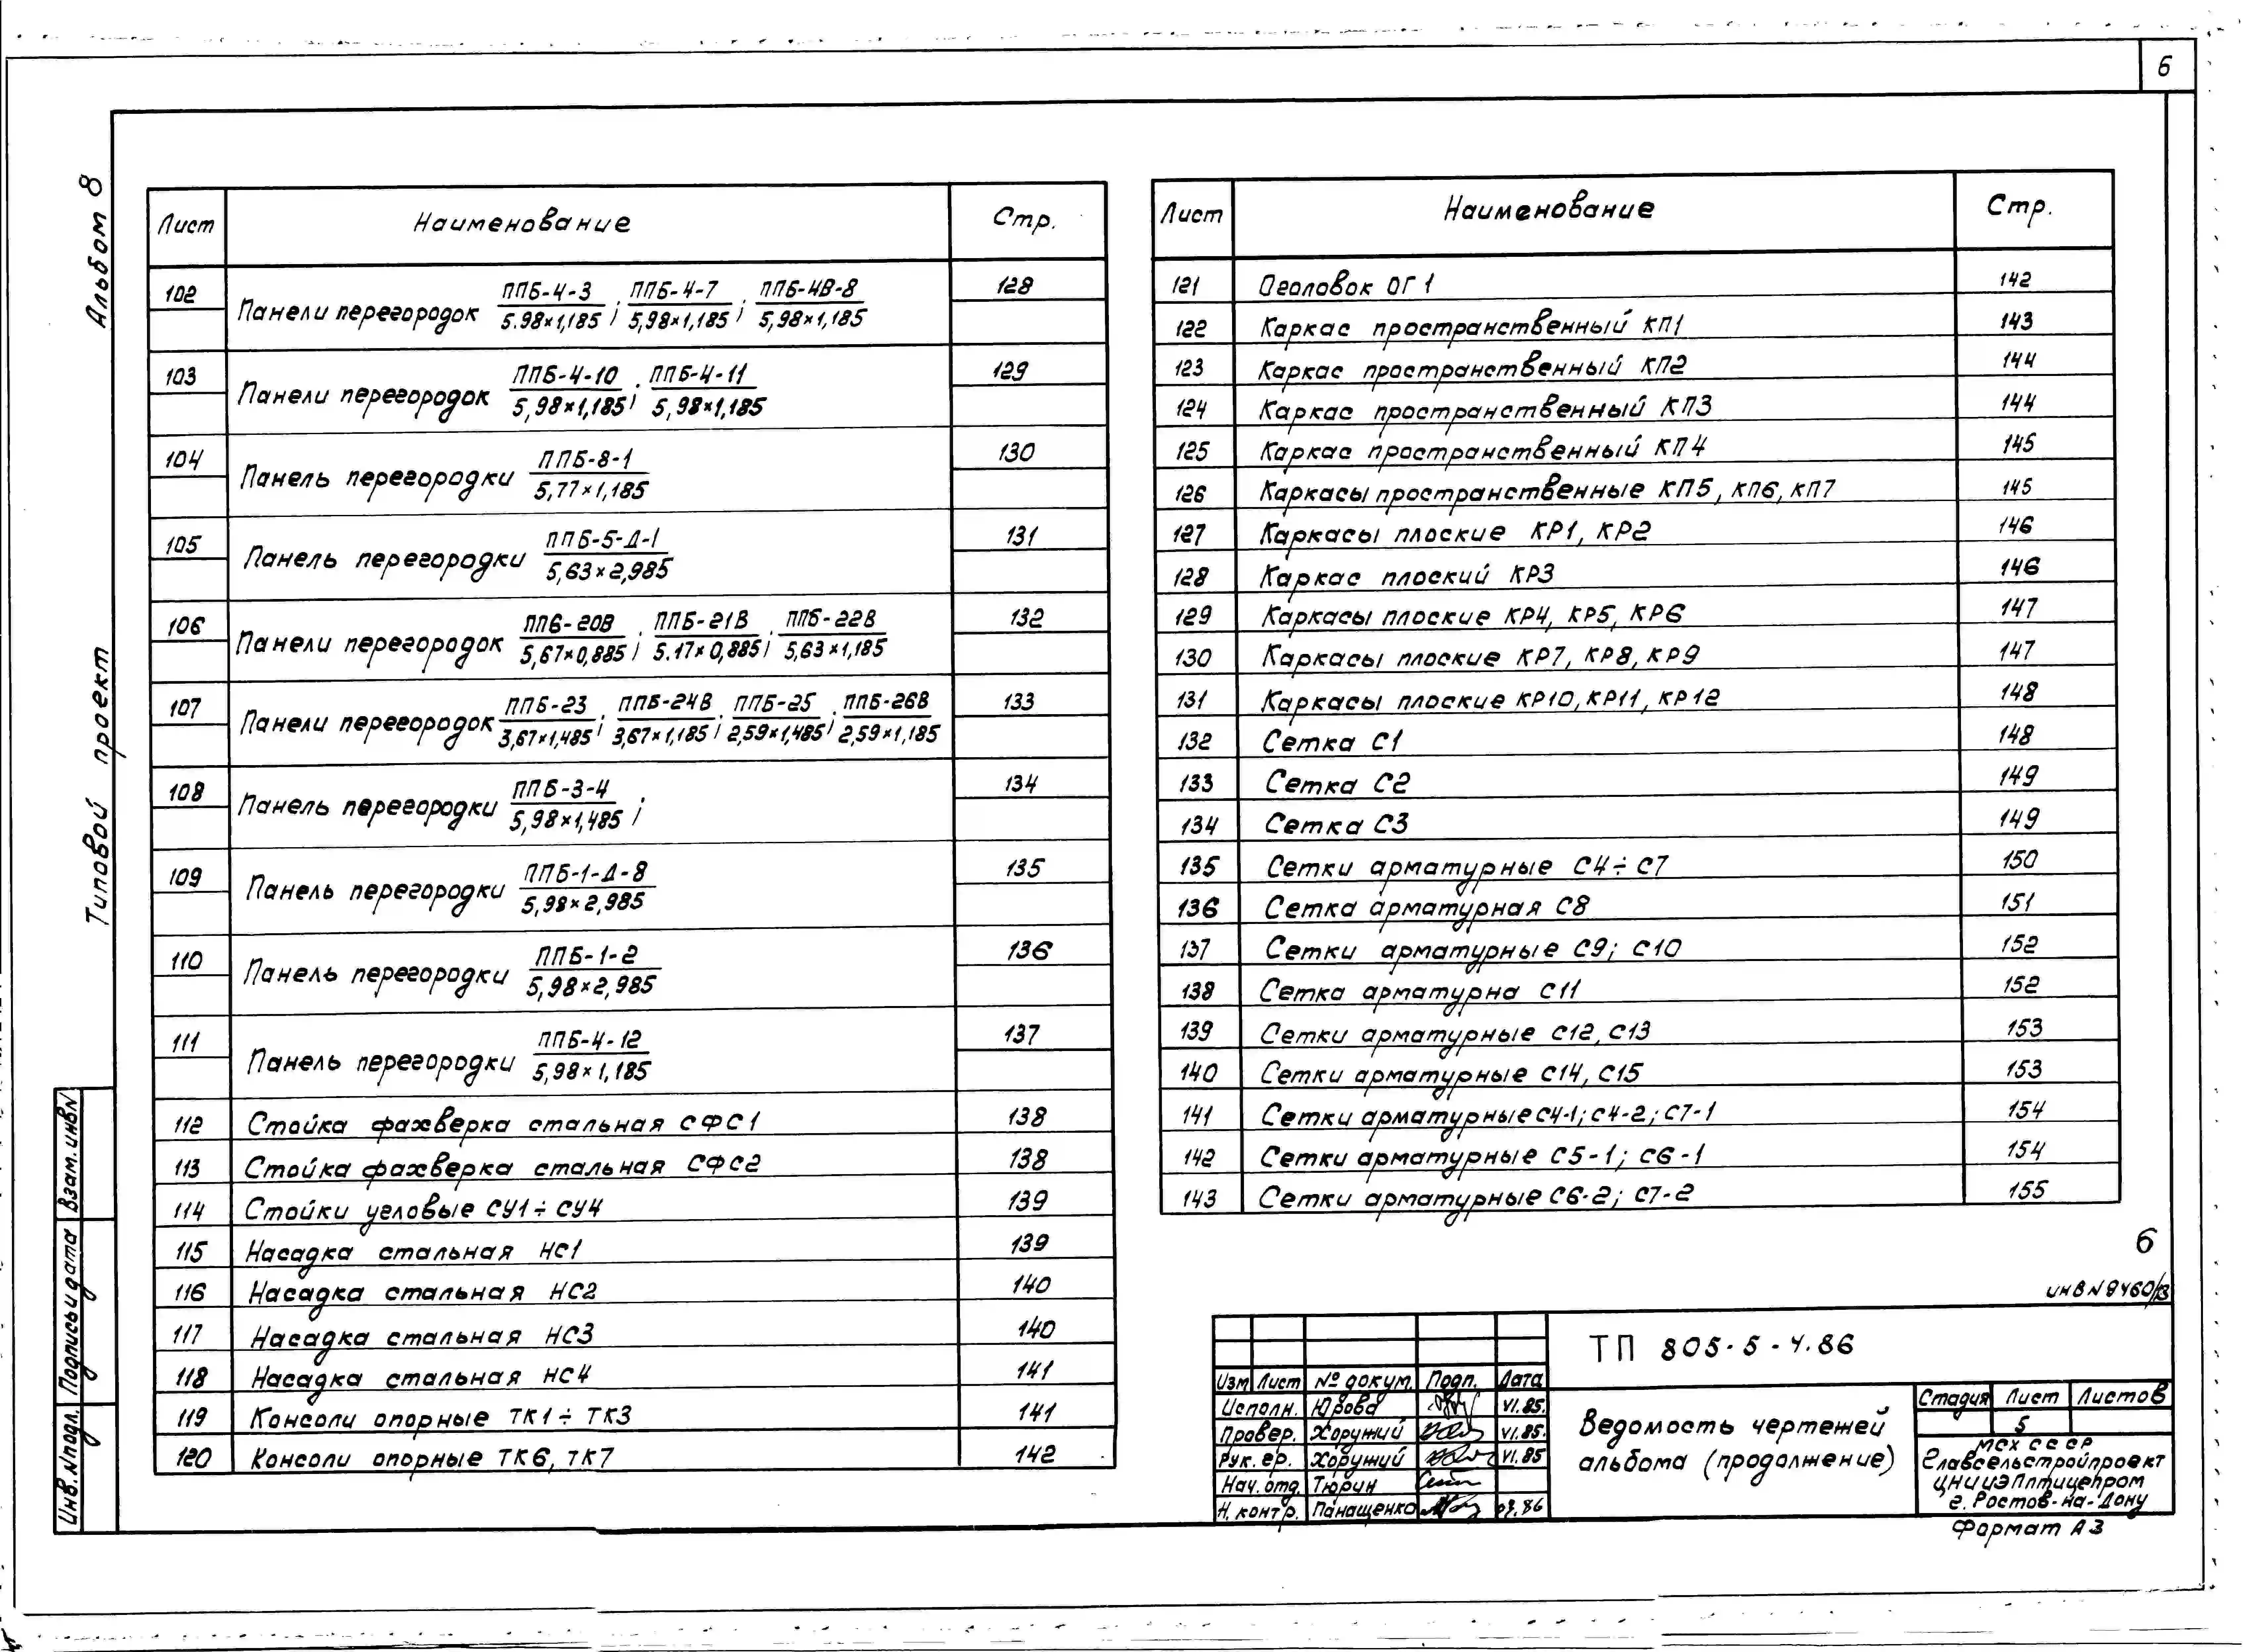 6
Альбом 8
Типовой проект
Лист Наименование Стр.
102 Панели перегородок ППБ-4-3 / 5.98×1,185; ППБ-4-7 / 5,98×1,185; ППБ-4В-8 / 5,98×1,185 128
103 Панели перегородок ППБ-4-10 / 5,98×1,185; ППБ-4-11 / 5,98×1,185 129
104 Панель перегородки ППБ-8-1 / 5,77×1,185 130
105 Панель перегородки ППБ-5-Д-1 / 5,63×2,985 131
106 Панели перегородок ППБ-20В / 5,67×0,885; ППБ-21В / 5.17×0,885; ППБ-22В / 5,63×1,185 132
107 Панели перегородок ППБ-23 / 3,67×1,485; ППБ-24В / 3,67×1,185; ППБ-25 / 2,59×1,485; ППБ-26В / 2,59×1,185 133
108 Панель перегородки ППБ-3-4 / 5,98×1,485; 134
109 Панель перегородки ППБ-1-Д-8 / 5,98×2,985 135
110 Панель перегородки ППБ-1-2 / 5,98×2,985 136
111 Панель перегородки ППБ-4-12 / 5,98×1,185 137
112 Стойка фахверка стальная СФС1 138
113 Стойка фахверка стальная СФС2 138
114 Стойки угловые СУ1÷СУ4 139
115 Насадка стальная НС1 139
116 Насадка стальная НС2 140
117 Насадка стальная НС3 140
118 Насадка стальная НС4 141
119 Консоли опорные ТК1÷ТК3 141
120 Консоли опорные ТК6, ТК7 142
Лист Наименование Стр.
121 Оголовок ОГ1 142
122 Каркас пространственный КП1 143
123 Каркас пространственный КП2 144
124 Каркас пространственный КП3 144
125 Каркас пространственный КП4 145
126 Каркасы пространственные КП5, КП6, КП7 145
127 Каркасы плоские КР1, КР2 146
128 Каркас плоский КР3 146
129 Каркасы плоские КР4, КР5, КР6 147
130 Каркасы плоские КР7, КР8, КР9 147
131 Каркасы плоские КР10, КР11, КР12 148
132 Сетка С1 148
133 Сетка С2 149
134 Сетка С3 149
135 Сетки арматурные С4÷С7 150
136 Сетка арматурная С8 151
137 Сетки арматурные С9; С10 152
138 Сетка арматурна С11 152
139 Сетки арматурные С12, С13 153
140 Сетки арматурные С14, С15 153
141 Сетки арматурные С4-1; С4-2; С7-1 154
142 Сетки арматурные С5-1; С6-1 154
143 Сетки арматурные С6-2; С7-2 155
6
инв N 9460/13
ТП 805-5-4.86
Изм Лист № докум. Подп. Дата
Исполн. Юрова VI.85.
Провер. Хоружий VI.85.
Рук. гр. Хоружий VI.85
Нач. отд. Тюрин
Н. контр. Панащенко 02.86
Ведомость чертежей
альбома (продолжение)
Стадия Лист Листов
5
МСХ СССР
Главсельстройпроект
ЦНИИЭПптицепром
г. Ростов-на-Дону
Формат А3
Взам. инв N
Подпись и дата
Инв. N подл.